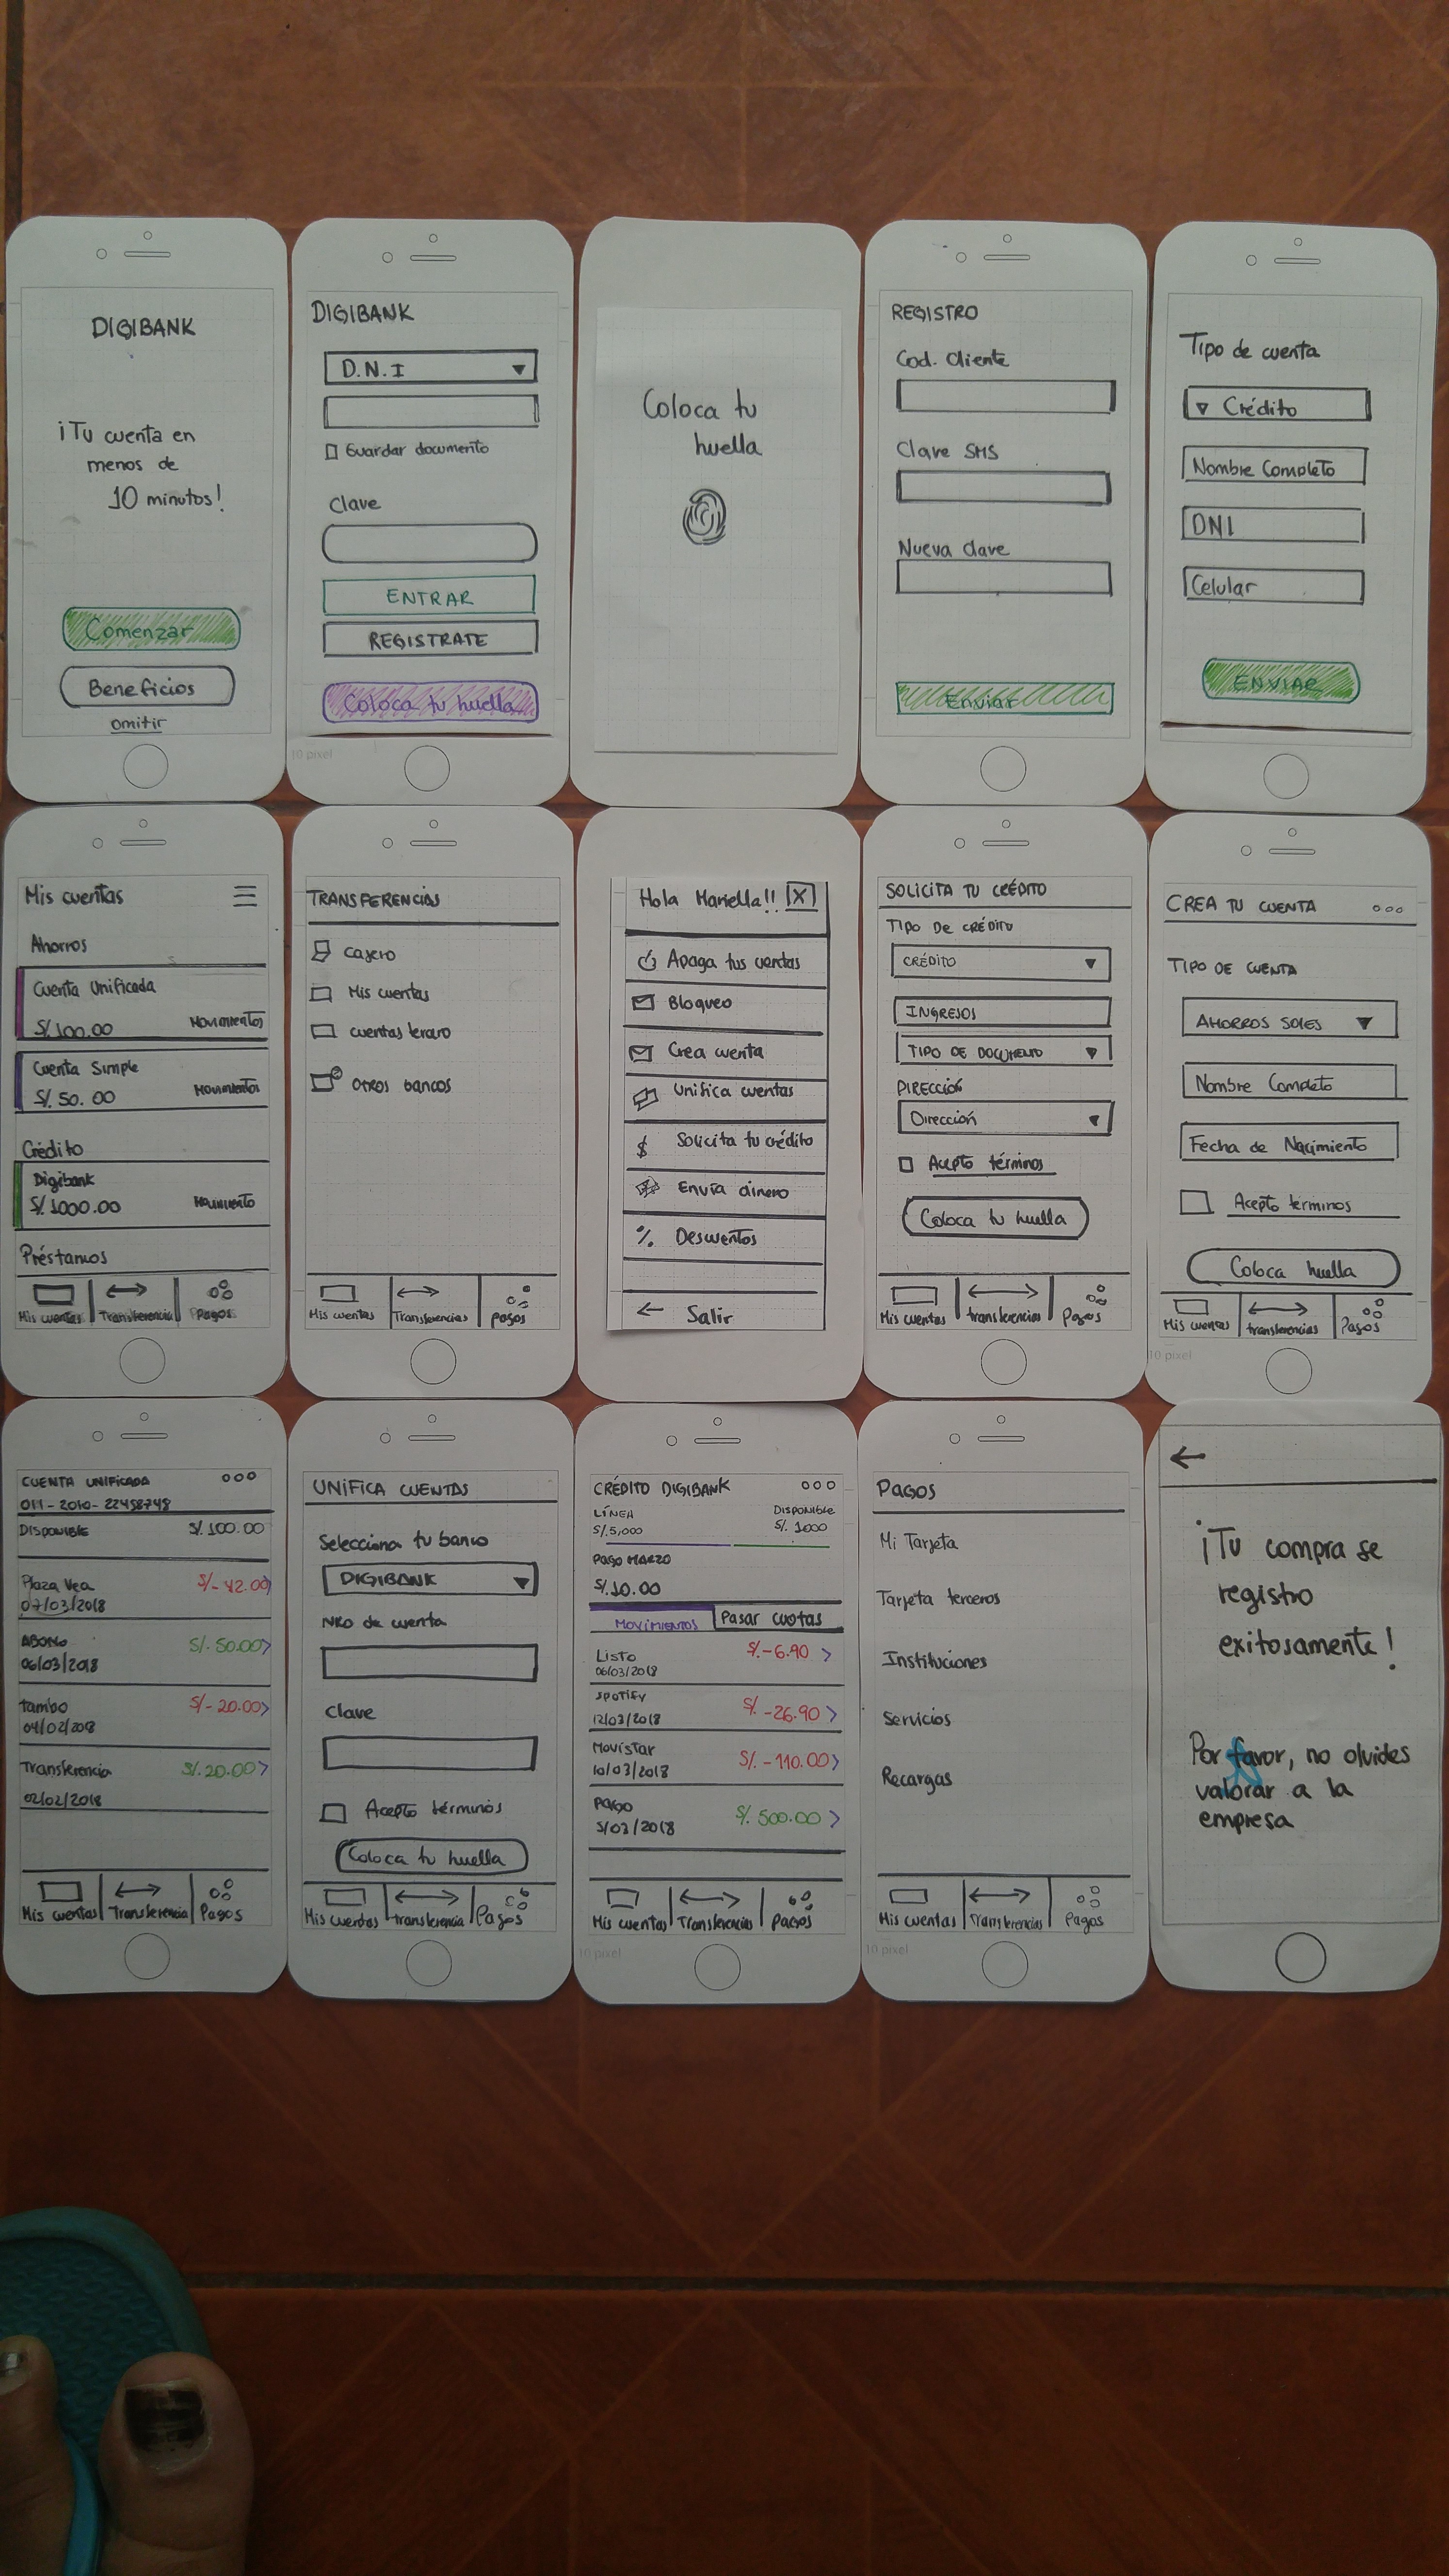 DIGIBANK
¡Tu cuenta en
menos de
10 minutos!
Comenzar
Beneficios
omitir
DIGIBANK
D.N.I
Guardar documento
Clave
ENTRAR
REGISTRATE
Coloca tu huella
10 pixel
Coloca tu
huella
REGISTRO
Cod. Cliente
Clave SMS
Nueva clave
Enviar
Tipo de cuenta
Crédito
Nombre Completo
DNI
Celular
ENVIAR
Mis cuentas
Ahorros
Cuenta Unificada
S/.100.00 Movimientos
Cuenta Simple
S/. 50.00 Movimientos
Crédito
Digibank
S/.1000.00 Movimiento
Préstamos
Mis cuentas Transferencia Pagos
TRANSFERENCIAS
Cajero
Mis cuentas
cuentas terceros
Otros bancos
Mis cuentas Transferencias Pagos
Hola Mariella!! X
Apaga tus cuentas
Bloqueo
Crea cuenta
Unifica cuentas
$ Solicita tu crédito
Envía dinero
% Descuentos
← Salir
SOLICITA TU CRÉDITO
TIPO DE CRÉDITO
CRÉDITO
INGRESOS
TIPO DE DOCUMENTO
DIRECCIÓN
Dirección
Acepto términos
Coloca tu huella
Mis cuentas transferencias Pagos
CREA TU CUENTA
TIPO DE CUENTA
AHORROS SOLES
Nombre Completo
Fecha de Nacimiento
Acepto terminos
Coloca huella
Mis cuentas transferencias Pagos
10 pixel
CUENTA UNIFICADA
011-2010-22458748
DISPONIBLE S/.100.00
Plaza Vea S/-42.00>
07/03/2018
ABONO S/.50.00>
06/03/2018
tambo S/-20.00>
04/02/2018
Transferencia S/.20.00>
02/02/2018
Mis cuentas Transferencia Pagos
UNIFICA CUENTAS
Selecciona tu banco
DIGIBANK
NRO de cuenta
Clave
Acepto términos
Coloca tu huella
Mis cuentas transferencia Pagos
CRÉDITO DIGIBANK
LÍNEA DISPONIBLE
S/.5,000 S/. 1000
PAGO MARZO
S/.10.00
MOVIMIENTOS Pasar cuotas
Listo S/.-6.90 >
06/03/2018
SPOTIFY S/.-26.90 >
12/03/2018
Movistar S/.-110.00>
10/03/2018
PAGO S/. 500.00 >
5/03/2018
Mis cuentas Transferencias Pagos
10 pixel
PAGOS
Mi Tarjeta
Tarjeta terceros
Instituciones
Servicios
Recargas
Mis cuentas Transferencias Pagos
10 pixel
←
¡Tu compra se
registro
exitosamente!
Por favor, no olvides
valorar a la
empresa